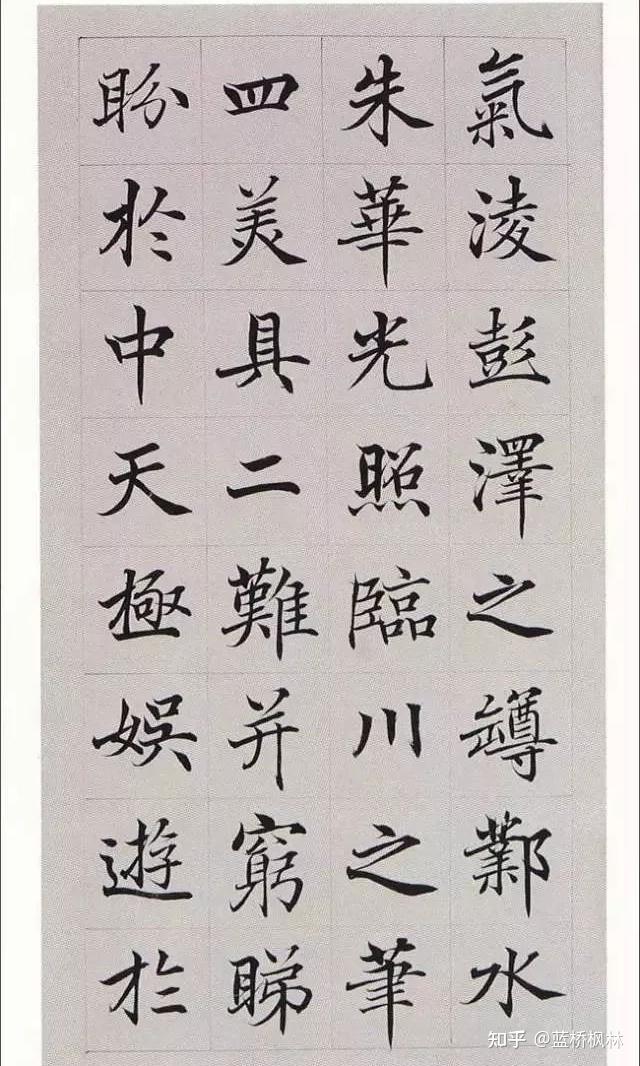 氣淩彭澤之罇鄴水
朱華光照臨川之筆
四美具二難并窮睇
眄於中天極娛遊於
知乎 @蓝桥枫林